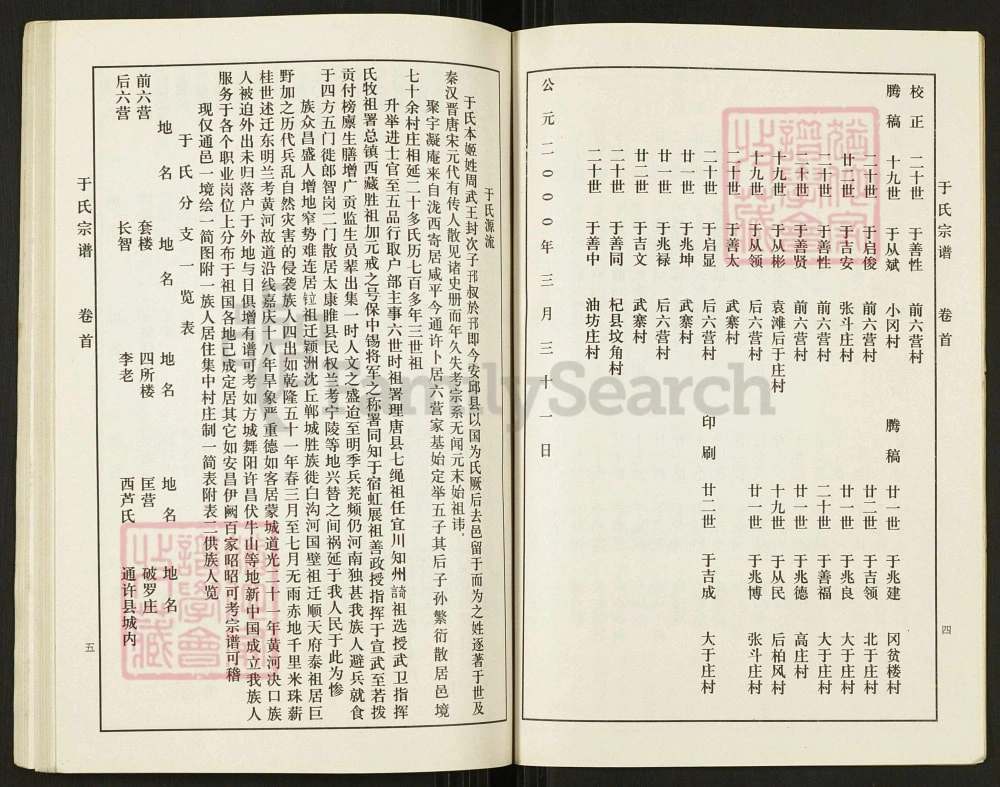 于氏宗谱 卷首
四
校正 二十世 于善性 前六营村
腾稿 十九世 于从斌 小冈村
二十世 于启俊 前六营村
廿一世 于吉安 张斗庄村
二十世 于善性 前六营村
二十世 于善贤 前六营村
十九世 于从彬 袁滩后于庄村
十九世 于从领 后六营村
二十世 于善太 武寨村
二十世 于启显 后六营村
廿一世 于兆坤 武寨村
廿一世 于兆禄 后六营村
廿二世 于吉文 武寨村
二十世 于善同 杞县坟角村
二十世 于善中 油坊庄村
腾稿 廿一世 于兆建 冈贫楼村
廿二世 于吉领 北于庄村
廿一世 于兆良 大于庄村
二十世 于善福 大于庄村
廿一世 于兆德 高庄村
十九世 于从民 后柏风村
廿一世 于兆博 张斗庄村
印刷 廿二世 于吉成 大于庄村
公元二000年三月三十一日
于氏源流
于氏本姬姓周武王封次子邘叔於邘即今安邱县以国为氏厥后去邑留于而为之姓逐著于世及
秦汉晋唐宋元代有传人散见诸史册而年久失考宗系无闻元末始祖讳
聚宇凝庵来自泷西寄居咸平今通许卜居六营家基始定举五子其后子孙繁衍散居邑境
七十余村庄相延二十多氏历七百多年三世祖
升举进士官至五品行取户部主事六世时祖署理唐县七绳祖任宜川知州 祖选授武卫指挥
氏牧祖署总镇西藏胜祖加元戒之号保中锡将军之称署同知于宿虹展祖善政授指挥于宣武至若拨
贡付榜廪生膳增广贡监生员辈出集一时人文之盛迨至明季兵茺频仍河南独甚我族人避兵就食
于四方五门徙郎智岗二门散居太康睢县民权兰考宁陵等地兴替之间祸延于我人民于此为惨
族众昌盛人增地窄势难连居 祖迁颖洲沈丘郸城胜族徙白沟河国壁祖迁顺天府泰祖居巨
野加之历代兵乱自然灾害的侵袭族人四出如乾隆五十一年春三月至七月无雨赤地千里米珠薪
桂世述迁东明兰考黄河故道沿线嘉庆十八年旱象严重德如客居蒙城道光二十一年黄河决口族
人被迫外出未归落户于外地与日俱增有谱可考如方城舞阳许昌伏牛山等地新中国成立我族人
服务于各个职业岗位上分布于祖国各地己成定居其它如安昌伊阙百家昭昭可考宗谱可稽
现仅通邑一境绘一简图附一族人居住集中村庄制一简表附表二供族人览
于氏分支一览表
地名 地名 地名 地名 地名
前六营 套楼 四所楼 匡营 破罗庄
后六营 长智 李老 西芦氏 通许县城内
于氏宗谱 卷首
五
FamilySearch